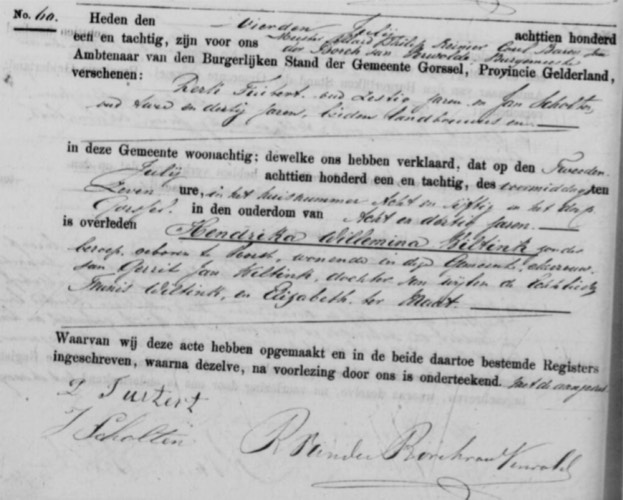 No. 60. Heden den Vierden Julij achttien honderd
een en tachtig, zijn voor ons Baron van
der Borch van Verwolde, Burgemeester
Ambtenaar van den Burgerlijken Stand der Gemeente Gorssel, Provincie Gelderland,
verschenen: oud Zestig jaren en Jan Scholten,
oud twee en dertig jaren, beiden landbouwers
in deze Gemeente woonachtig; dewelke ons hebben verklaard, dat op den Tweeden
Julij achttien honderd een en tachtig, des voormiddags ten
Zeven ure, in het huisnummer Acht en vijftig in het dorp
Gorssel. in den ouderdom van Acht en dertig jaren.
is overleden Hendrika Willemina Wiltink zonder
beroep, geboren te wonende in deze Gemeente, echtgenoote
van Gerrit Jan dochter van wijlen de echtelieden
Teunis Wiltink, en Elizabeth ter
Waarvan wij deze acte hebben opgemaakt en in de beide daartoe bestemde Registers
ingeschreven, waarna dezelve, na voorlezing door ons is onderteekend. met de aangevers
J Scholten
R van der Borch van Verwolde